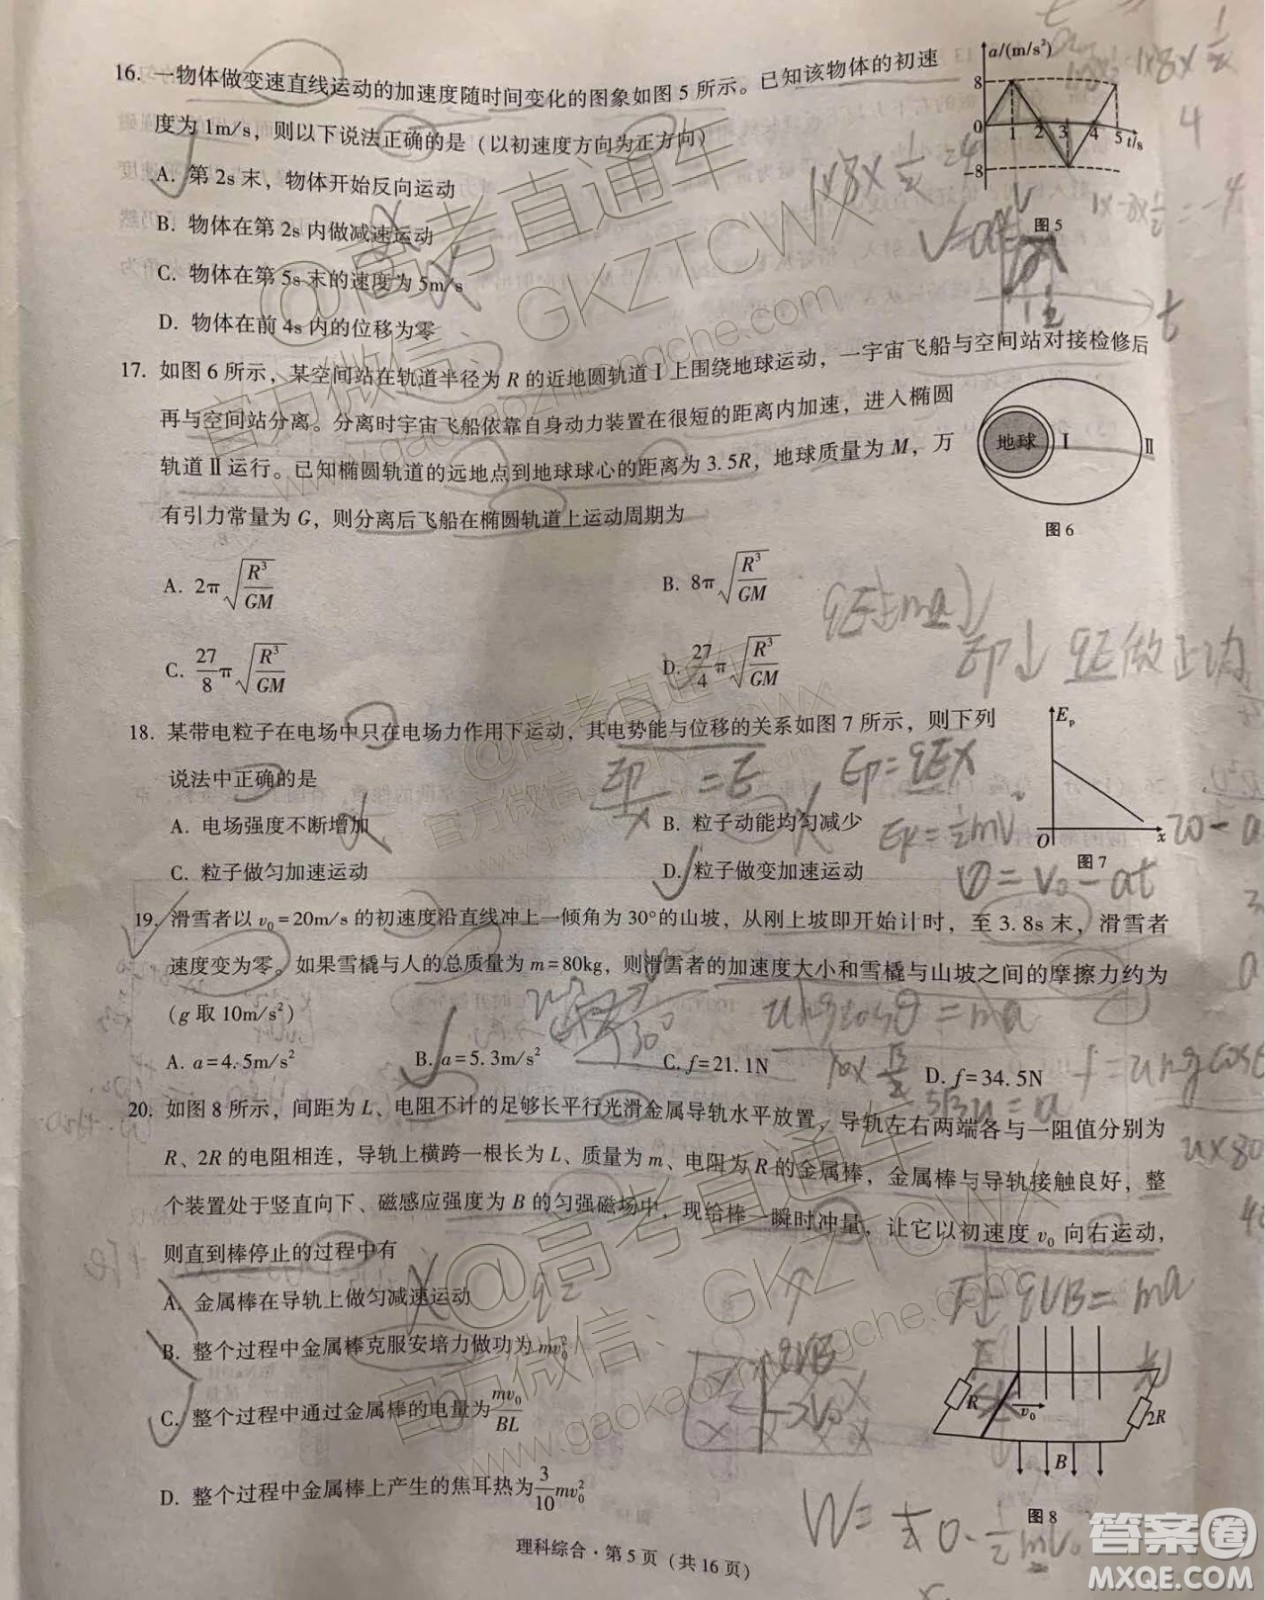 16. 一物体做变速直线运动的加速度随时间变化的图象如图 5 所示。已知该物体的初速
度为 1m/s，则以下说法正确的是（以初速度方向为正方向）
A. 第 2s 末，物体开始反向运动
B. 物体在第 2s 内做减速运动
C. 物体在第 5s 末的速度为 5m/s
D. 物体在前 4s 内的位移为零
a/(m/s²)
8
0
-8
1 2 3 4 5 t/s
图 5
17. 如图 6 所示，某空间站在轨道半径为 R 的近地圆轨道Ⅰ上围绕地球运动，一宇宙飞船与空间站对接检修后
再与空间站分离。分离时宇宙飞船依靠自身动力装置在很短的距离内加速，进入椭圆
轨道Ⅱ运行。已知椭圆轨道的远地点到地球球心的距离为 3.5R，地球质量为 M，万
有引力常量为 G，则分离后飞船在椭圆轨道上运动周期为
地球 Ⅰ Ⅱ
图 6
A. 2π√(R³/GM) B. 8π√(R³/GM)
C. 27/8 π√(R³/GM) D. 27/4 π√(R³/GM)
18. 某带电粒子在电场中只在电场力作用下运动，其电势能与位移的关系如图 7 所示，则下列
说法中正确的是
A. 电场强度不断增加 B. 粒子动能均匀减少
C. 粒子做匀加速运动 D. 粒子做变加速运动
Ep
O x
图 7
19. 滑雪者以 v₀=20m/s 的初速度沿直线冲上一倾角为 30°的山坡，从刚上坡即开始计时，至 3.8s 末，滑雪者
速度变为零。如果雪橇与人的总质量为 m=80kg，则滑雪者的加速度大小和雪橇与山坡之间的摩擦力约为
(g 取 10m/s²)
A. a=4.5m/s² B. a=5.3m/s² C. f=21.1N D. f=34.5N
20. 如图 8 所示，间距为 L、电阻不计的足够长平行光滑金属导轨水平放置，导轨左右两端各与一阻值分别为
R、2R 的电阻相连，导轨上横跨一根长为 L、质量为 m、电阻为 R 的金属棒，金属棒与导轨接触良好，整
个装置处于竖直向下、磁感应强度为 B 的匀强磁场中，现给棒一瞬时冲量，让它以初速度 v₀ 向右运动，
则直到棒停止的过程中有
A. 金属棒在导轨上做匀减速运动
B. 整个过程中金属棒克服安培力做功为 mv₀²
C. 整个过程中通过金属棒的电量为 mv₀/BL
D. 整个过程中金属棒上产生的焦耳热为 3/10 mv₀²
R v₀ 2R
B
图 8
理科综合·第 5 页（共 16 页）
@高考直通车
GKZTCWX
官方微信、
www.gaokaozhitongche.com
@高考直通车
官方微信、GKZTCWX
www.gaokaozhitongche.com
答案圈
MXQE.COM